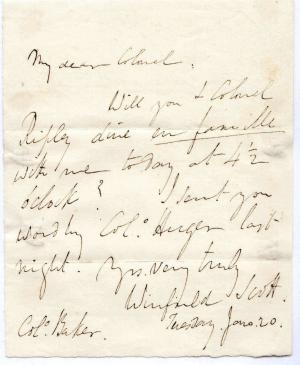 My dear Colonel,
Will you & Colonel
Ripley dine en famille
with me today at 4 1/2
o'clock? I sent you
word by Col.º Huger last
night. Yrs. very truly
Winfield Scott.
Col.º Baker. Tuesday, Jan. 20.